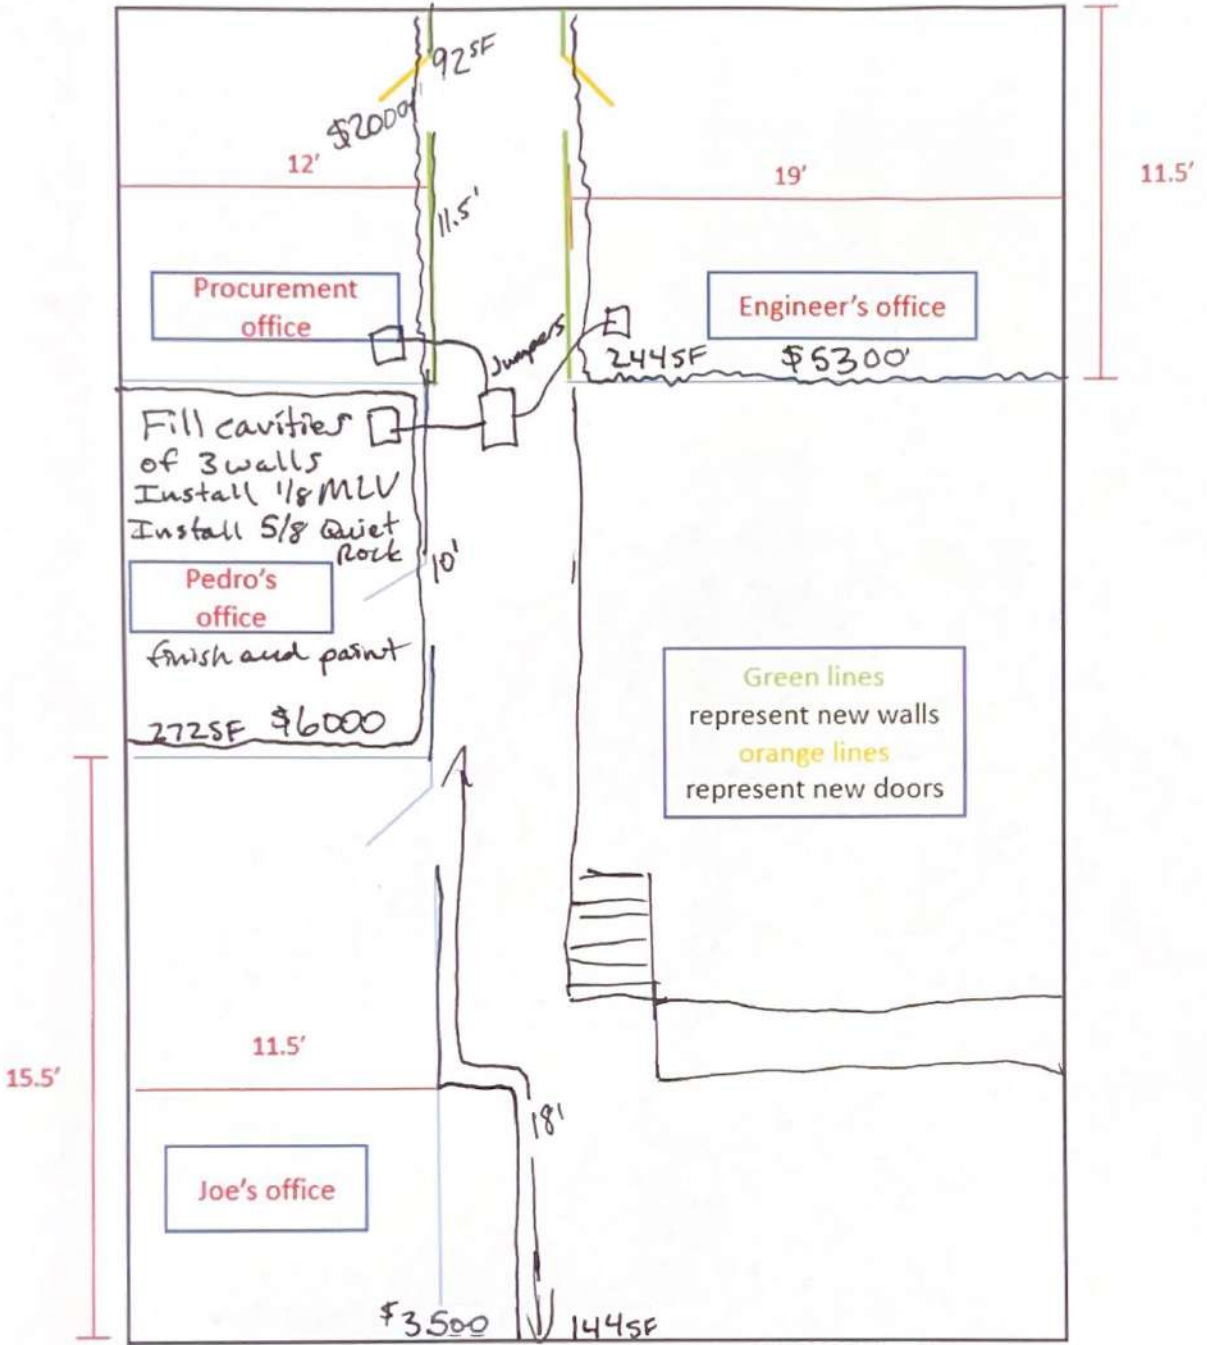 92SF
$2000
12'
19'
11.5'
11.5'
Procurement
office
Jumpers
Engineer's office
244SF $5300
Fill cavities
of 3 walls
Install 1/8 MLV
Install 5/8 Quiet
Rock
10'
Pedro's
office
finish and paint
272SF $6000
Green lines
represent new walls
orange lines
represent new doors
11.5'
15.5'
18'
Joe's office
$3500
144SF